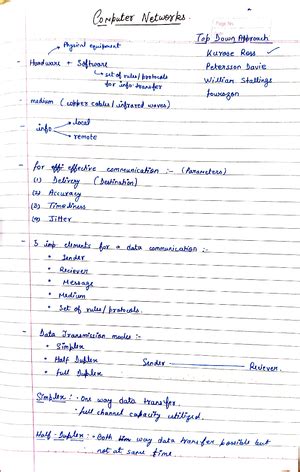 Computer Networks.
Page No.
Top Down Approach
Physical equipment
Kurose Ross ✓
- Hardware + Software
Peterson Davie
set of rules/protocols
for info transfer
William Stallings
- medium (copper cables/infrared waves)
- info
local
remote
- for effective communication :- (Parameters)
(1) Delivery (Destination)
(2) Accuracy
(3) Timeliness
(4) Jitter
- 5 imp elements for a data communication :-
• Sender
• Reciever
• Message
• Medium
• Set of rules/protocols.
- Data Transmission modes :-
• Simplex
• Half Duplex
Sender Reciever.
• Full Duplex
Simplex :- • One way data transfer.
• full channel capacity utilized.
Half-Duplex :- • Both way data transfer possible but
not at same time.